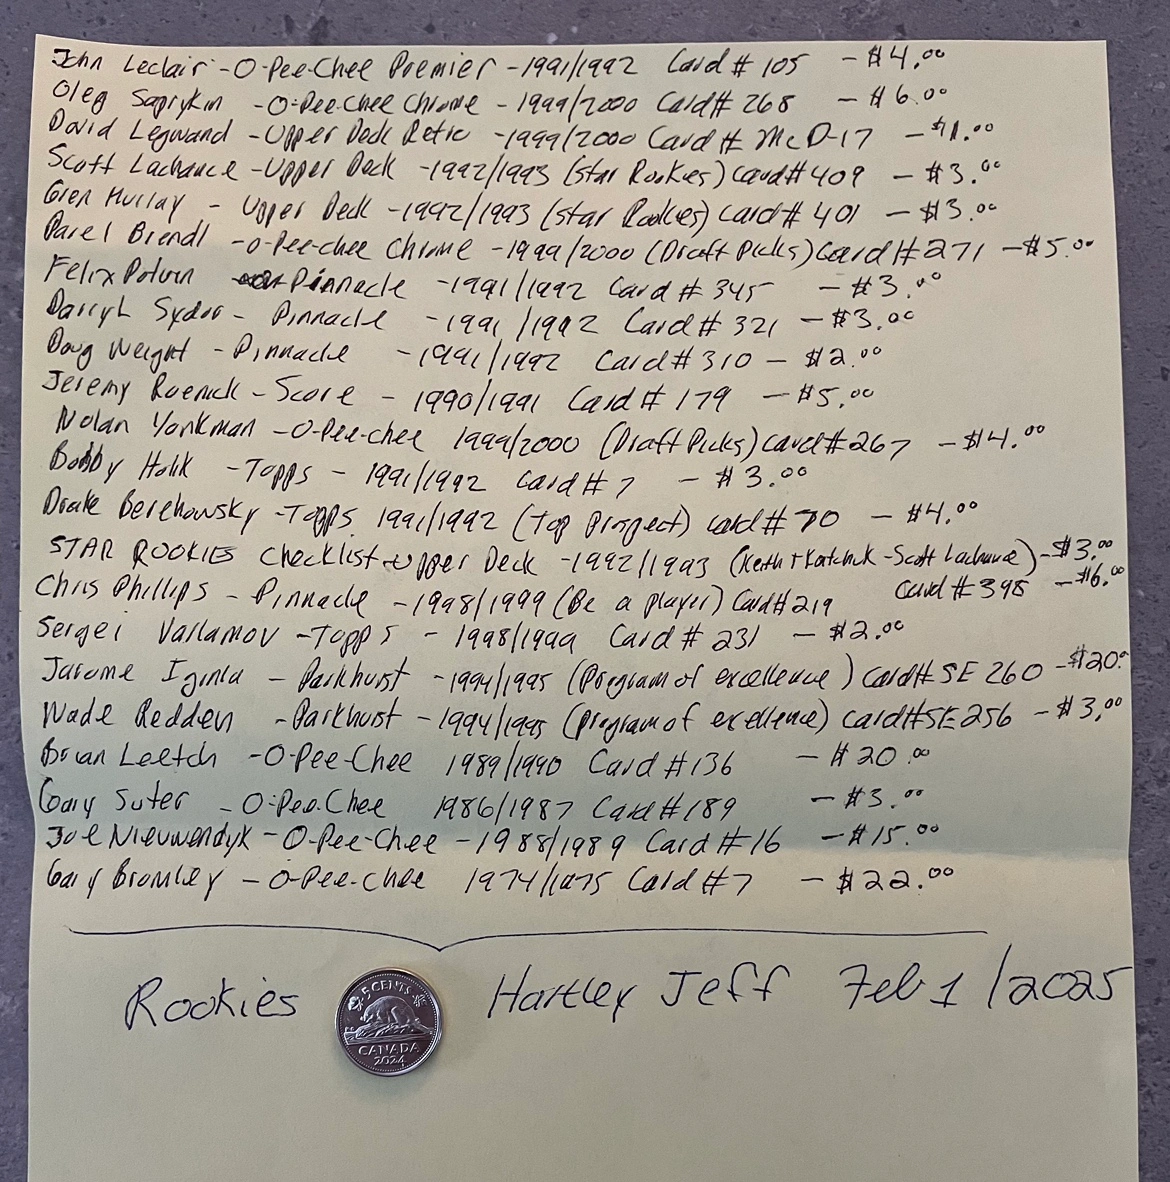 John Leclair - O-Pee-Chee Premier - 1991/1992 Card # 105 - $4.00
Oleg Saprykin - O-Pee-Chee Chrome - 1999/2000 Card # 268 - $6.00
David Legwand - Upper Deck Retro - 1999/2000 Card # McD-17 - $1.00
Scott Lachance - Upper Deck - 1992/1993 (Star Rookies) card # 409 - $3.00
Glen Murray - Upper Deck - 1992/1993 (Star Rookies) card # 401 - $3.00
Pavel Brendl - O-Pee-chee Chrome - 1999/2000 (Draft Picks) Card # 271 - $5.00
Felix Potvin Pinnacle - 1991/1992 Card # 345 - $3.00
Darryl Sydor - Pinnacle - 1991/1992 Card # 321 - $3.00
Doug Weight - Pinnacle - 1991/1992 Card # 310 - $2.00
Jeremy Roenick - Score - 1990/1991 Card # 179 - $5.00
Nolan Yonkman - O-Pee-chee 1999/2000 (Draft Picks) card # 267 - $4.00
Bobby Holik - Topps - 1991/1992 Card # 7 - $3.00
Drake Berehowsky - Topps 1991/1992 (Top Prospect) card # 70 - $4.00
STAR ROOKIES Checklist - Upper Deck - 1992/1993 (Keith Tkatchuk - Scott Lachance) - $3.00
Card # 398
Chris Phillips - Pinnacle - 1998/1999 (Be a player) Card # 219 - $6.00
Sergei Varlamov - Topps - 1998/1999 Card # 231 - $2.00
Jarome Iginla - Parkhurst - 1994/1995 (Program of excellence) Card # SE 260 - $20.00
Wade Redden - Parkhurst - 1994/1995 (program of exellence) Card # SE 256 - $3.00
Brian Leetch - O-Pee-Chee 1989/1990 Card # 136 - $20.00
Gary Suter - O-Pee-Chee 1986/1987 Card # 189 - $3.00
Joe Nieuwendyk - O-Pee-Chee - 1988/1989 Card # 16 - $15.00
Gary Bromley - O-Pee-chee 1974/1975 Card # 7 - $22.00
Rookies Hartley Jeff Feb 1/2025
5 CENTS
CANADA
2024